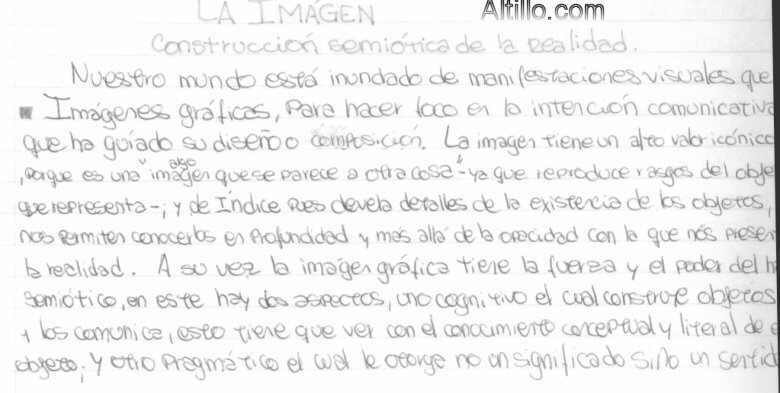 LA IMAGEN
Altillo.com
Construcción semiótica de la realidad.
Nuestro mundo está inundado de manifestaciones visuales que
Imágenes gráficas, para hacer foco en la intención comunicativa
que ha guiado su diseño o composición. La imagen tiene un alto valor icónico
, porque es una "imagen algo que se parece a otra cosa" - ya que reproduce rasgos del obje
que representa -; y de Indice pues devela detalles de la existencia de los objetos,
nos permiten conocerlos en profundidad y más allá de la opacidad con la que nos presen
la realidad. A su vez la imagen gráfica tiene la fuerza y el poder del h
semiótico, en este hay dos aspectos, uno cognitivo el cual construye objetos
y los comunica, esto tiene que ver con el conocimiento conceptual y literal de
objeto; y otro Pragmático el cual le otorga no un significado sino un sentid